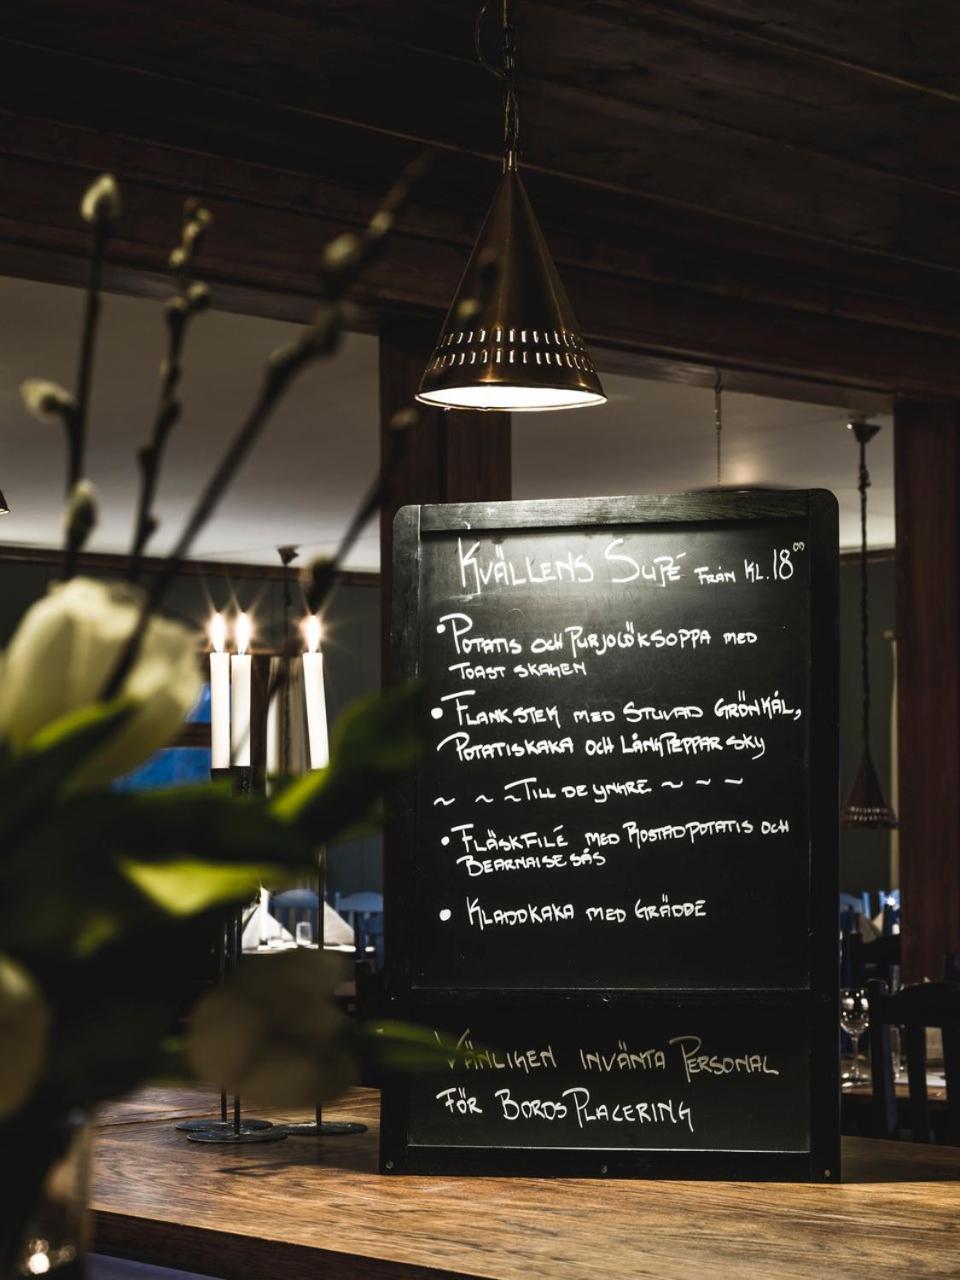 KVÄLLENS SUPÉ FRÅN KL.18⁰⁰
• POTATIS OCH PURJOLÖKSOPPA MED
TOAST SKAGEN
• FLANKSTEK MED STUVAD GRÖNKÅL,
POTATISKAKA OCH LÅNGPEPPAR SKY
~ ~ ~TILL DE YNGRE ~ ~ ~
• FLÄSKFILÉ MED ROSTADPOTATIS OCH
BEARNAISESÅS
• KLADDKAKA MED GRÄDDE
VÄNLIGEN INVÄNTA PERSONAL
FÖR BORDSPLACERING